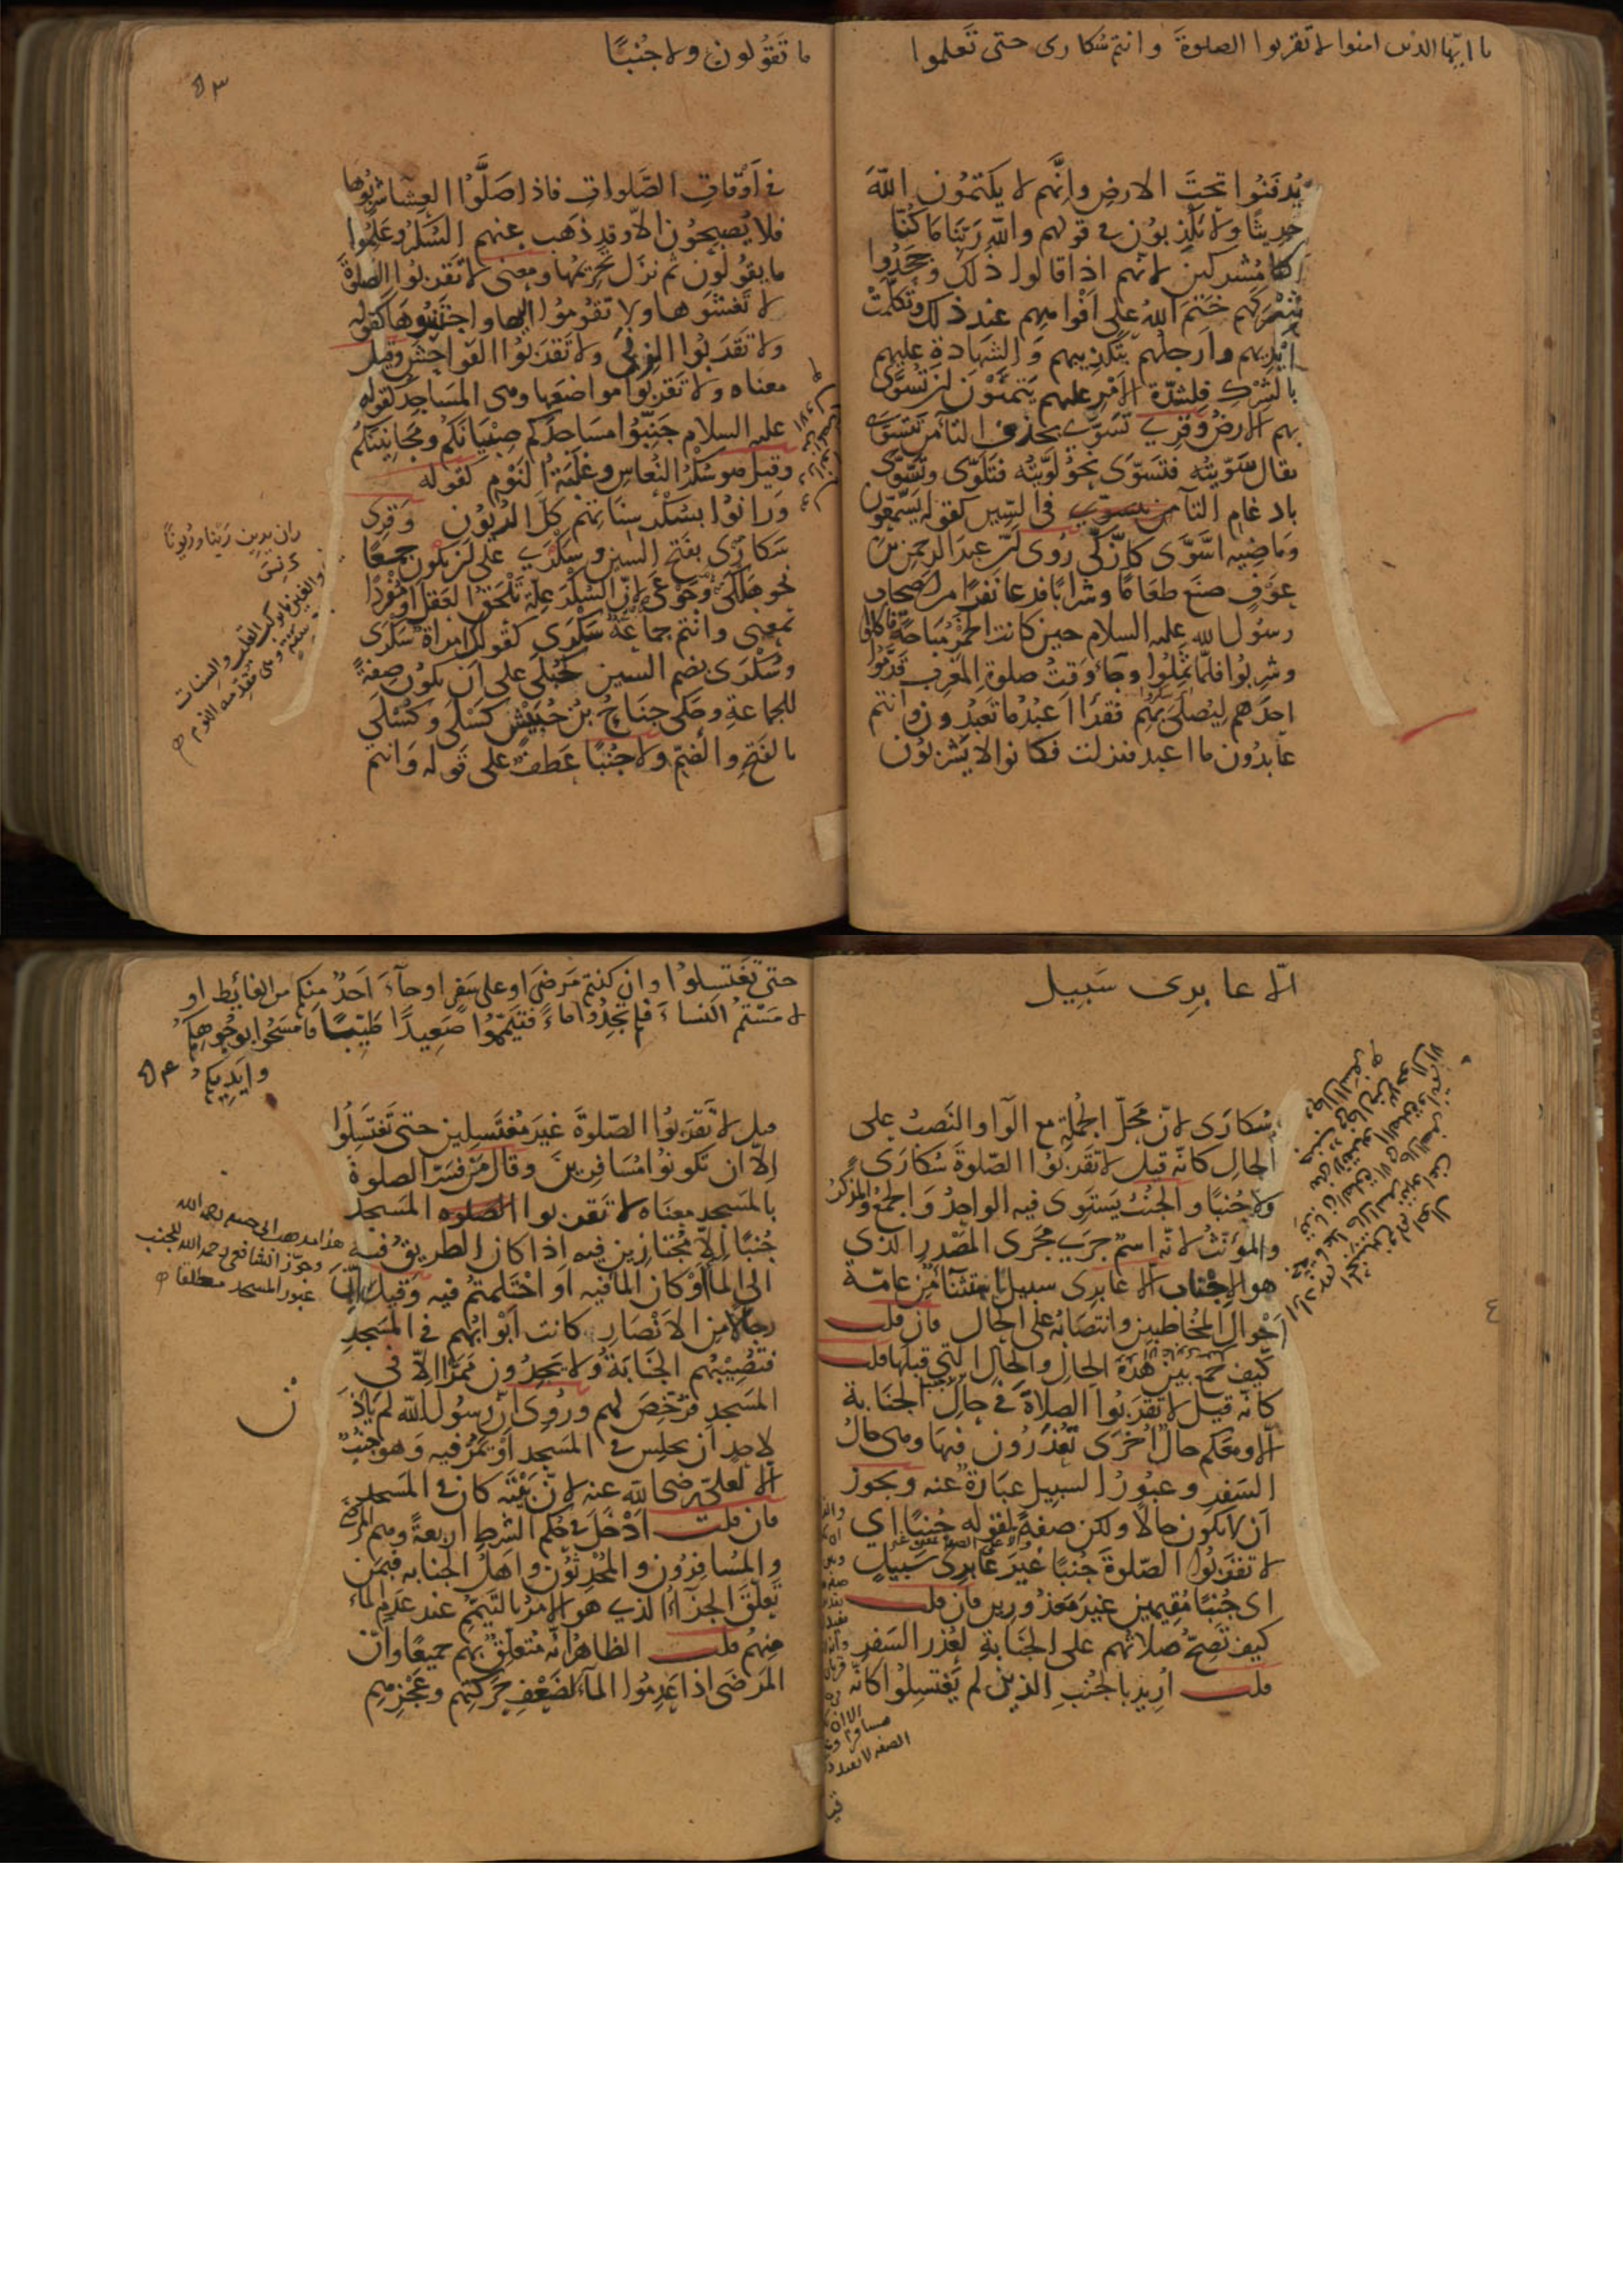 يا ايها الذين امنوا لا تقربوا الصلوة وانتم سُكارى حتى تَعلموا
يُدفَنُوا تحتَ الارضِ وانَّهم لا يكتمُون اللّٰهَ
حديثًا ولا يكذبوُن في قولهم واللّٰهِ رَبّنَا مَا كُنَّا
مُشركين لانهم اذا قالوا ذلك وجَحَدُوا
شركهم خَتَمَ اللّٰهُ على اَفْواههم عند ذلك وتكلّمَتْ
اَيْديهم وارجلهم بتكذيبهم وَالشهَادةِ عليهم
بالشركِ فلشدّة الاَمْر عليهم يَتمنّوْنَ لن تُسَوَّى
بهم الارضُ وقرئ تَسَوَّى بحذف التآ من تَتَسَوَّى
يقال سَوّيتُه فتسَوّى نحوُ لَوّيتُه فتلَوّى وتَسَّوَّى
بادغام التآ من تتسوّى في السّين كقوله يَسَّمّعوُن
وَماضيه اسَّوَّى كازَّكّى رُوى انّ عبدَ الرحمن بن
عوفٍ صنع طعَامًا وشرابًا فدعا نفرًا من اصحاب
رسوُل اللّٰه عليه السلام حين كانت الخمرُ مُبَاحَةً فاكلوا
وشربُوا فلمّا ثملُوا وجآء وَقتُ صلوة المَغربِ قدَّمُوا
احدَهم ليُصلّىَ بهم فقرَا اَعْبُدُ ما تعبُدون وانتم
عابدُون ما اعبد فنزلت فكانوا لا يَشربوُن
ما تَقُولون ولا جُنُبًا
في اَوْقاتِ الصَّلواتِ فاذا صَلَّوُا العِشا شربُوها
فلا يُصبحُون الّا وقد ذهَب عنهم السُّكرُ وعَلموا
ما يقوُلون ثم نزَل تحريمُها ومعنى لا تَقربُوا الصلوةَ
لا تغشَوهَا ولا تقوُموُا اليها واجتَنبُوهَا كقوله
ولا تقَربُوا الزنى ولا تقربُوا الفواحشَ وقيل
معناه ولا تَقربُوا مواضعَها وهى المَساجد لقوله
عليه السلام جَنّبُوا مسَاجدَكم صِبْيَانَكم ومَجَانِينَكم
وقيل هو سُكْرُ النُّعاس وغَلَبَةُ النّوْم كقوله
وَرَانُوا بسُكْرِ سِنَاتِهم كلَّ الرُيوُن وَقرِئ
سَكارَى بفتح السين وسَكْرَى على ان يكون جمعًا
نحو هَلْكَى وجَوْعَى لانّ السُّكرَ علّة تَلْحَقُ العَقلَ او مُفْرَدًا
بمعنى وانتم جماعَة سَكْرَى كقولك امرَاة سَكرَى
وسُكْرَى بضم السين كحُبْلَى على اَن يكُون صفةً
للجماعةِ وحَكى جنَاحُ بنُ حُبَيْش كَسْلَى وكُسْلَى
بالفتح والضمّ ولا جُنُبًا عَطفٌ على قوله وانتم
ران يرين رَيْنًا ورُيونًا
الّا عابِرى سَبيل
سُكارَى لانّ مَحلّ الجُملةِ مع الوَاو النصبُ على
الحال كانّه قيل لا تَقَربُوا الصّلوةَ سُكارَى
ولا جُنبًا والجنُبُ يَستَوى فيه الواحدُ وَالجمعُ والمذكرُ
والمؤنّثُ لانّه اسم جرَى مَجْرَى المَصْدر الذى
هو الاِجْناب الا عابرى سبيل استثنآ من عامّة
اَحْوال المُخاطبين وانتصَابُه على الحال فان قلت
كيفَ جمع بين هذه الحال والحال التى قبلها قلت
كانه قيل لا تقربُوا الصلاةَ في حالِ الجنَابة
الا ومعكم حال اُخْرَى تُعْذرُون فيهَا وهى حالُ
السَفر وعبُورُ السبيل عبَارة عنه ويجوز
اَن لا يكون حالاً ولكن صفةً لقوله جُنُبًا اى
لا تقربُوا الصّلوةَ جُنبًا غيرَ عَابرى سَبيلٍ
اى جُنُبًا مُقيمين غيرَ مَعذُورين فان قلت
كيف تَصِحّ صَلاتُهم على الجنَابةِ لعُذر السَفر
قلت اُريدَ بالجُنُبِ الذين لم يَغتسِلُوا كانّه
حتى تَغتسِلوُا وان كنتم مَرضَى او على سَفرٍ او جآءَ اَحَدٌ مِنكم من الغائط او
لامَسْتمُ النساءَ فلم تجِدُوا ماءً فتيَمّمُوا صَعِيدًا طيّبًا فامْسَحُوا بوجُوهِكم
وايَدِيكم
قيل لا تَقَربُوا الصّلوةَ غيرَ مُغتَسلين حتى تَغتَسِلُوا
الّا ان تكونوُا مُسَافرينَ وقال مَنْ فسَّر الصلوةَ
بالمَسجد معنَاه لا تَقربوا المَسجد
جُنبًا الّا مُجْتازين فيه اذا كان الطريقُ فيه
الى الماءِ اَوْ كان الماءُ فيه او احْتَلمتُم فيه وقيل اِنّ
رجالاً من الاَنْصَار كانت اَبْوابُهم في المَسجدِ
فتُصِيْبُهم الجَنَابةُ ولا يجدُون مَمَرًّا الّا فى
المَسجد فرُخّصَ لهم ورُوِى اَنّ رسُولَ اللّٰه لم يَاذَنْ
لاحدٍ اَن يجلسَ في المَسجد اَوْ يَمُرَّ فيه وَهو جنُبٌ
الّا لعلىّ رضى اللّٰه عنه لانّ بَيْتَه كان في المَسجد
فان قلت اَدْخَلَ في حُكم الشرط اربعةً وهم المَرْضَى
والمُسَافرُون والمُحْدِثُون واَهلُ الجنابه فبمَن
تَعلّقَ الجزآءُ الذى هو الامرُ بالتّيَمُّم عند عَدَمِ الماء
منهُم قلت الظاهرُ انّه مُتعلّقٌ بهم جميعًا وانّ
المَرْضَى اذا عَدِمُوا المآءَ لضَعْفِ حَركتِهم وعَجْزِهم
هذا مذهب ابى حنيفة رحمه الله
وجوّز الشافعى رحمه الله للجنب
عبور المسجد مطلقا